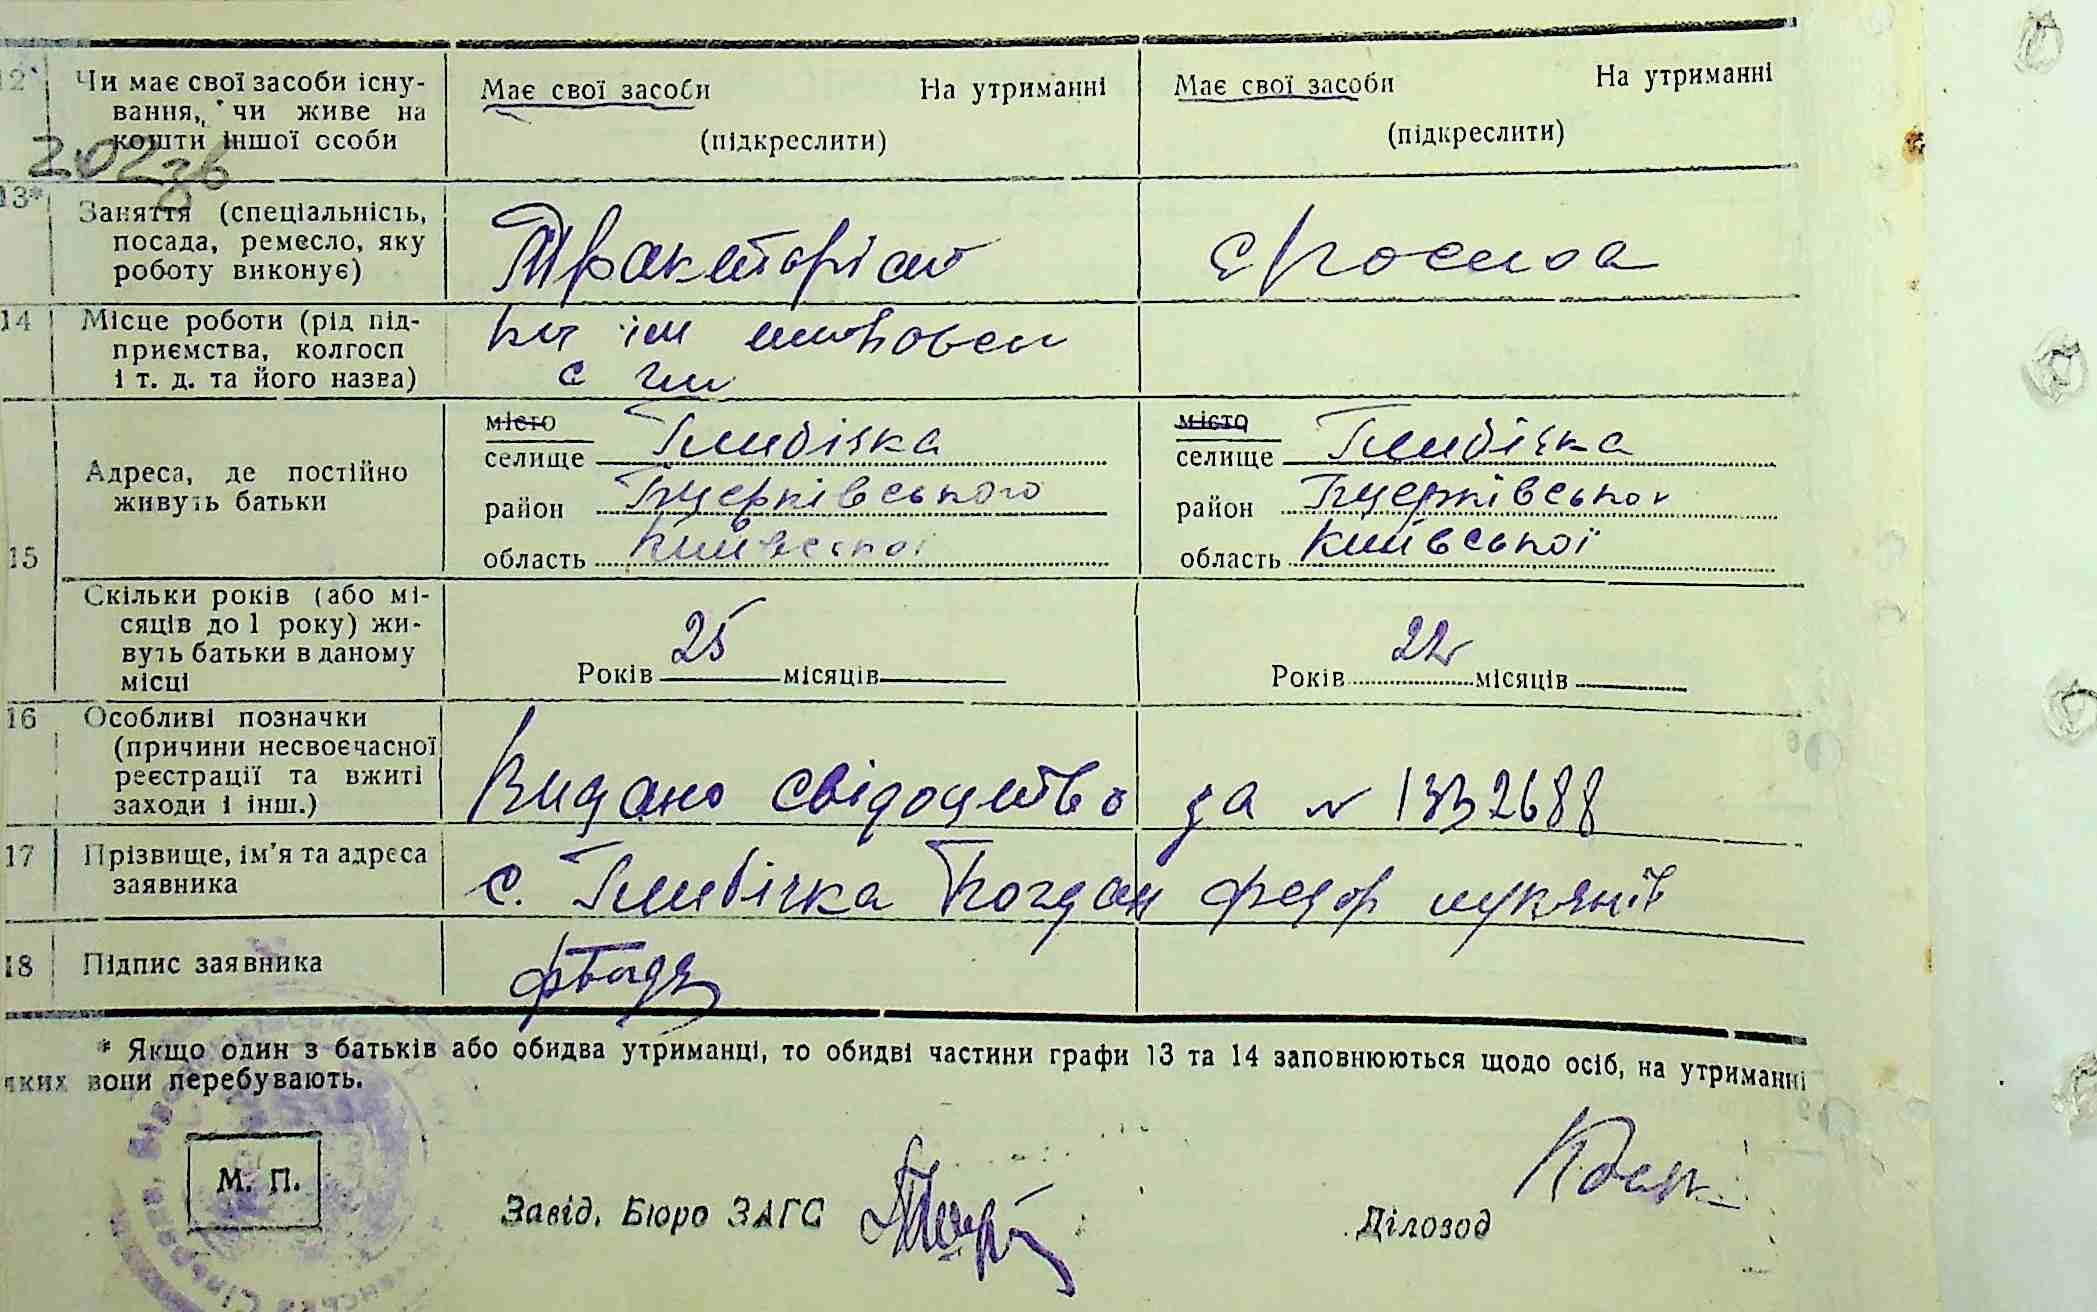 12* Чи має свої засоби існу- Має свої засоби На утриманні Має свої засоби На утриманні
вання, чи живе на
кошти іншої особи (підкреслити) (підкреслити)
202зв
13* Заняття (спеціальність,
посада, ремесло, яку Тракторіст
роботу виконує)
14 Місце роботи (рід під- ім
приємства, колгосп
і т. д. та його назва) с
місто Глибічка місто Глибічка
селище селище
Адреса, де постійно
живуть батьки район Бцерківського район Бцерківськог
15 область Київської область Київської
Скільки років (або мі-
сяців до 1 року) жи-
вуть батьки в даному
місці Років 25 місяців Років 22 місяців
16 Особливі позначки
(причини несвоєчасної
реєстрації та вжиті Видано свідоцтво за № 1332688
заходи і інш.)
17 Прізвище, ім'я та адреса
заявника с. Глибічка Богдан Федор
18 Підпис заявника
* Якщо один з батьків або обидва утриманці, то обидві частини графи 13 та 14 заповнюються щодо осіб, на утриманні
яких вони перебувають.
М. П.
Завід. Бюро ЗАГС
Діловод